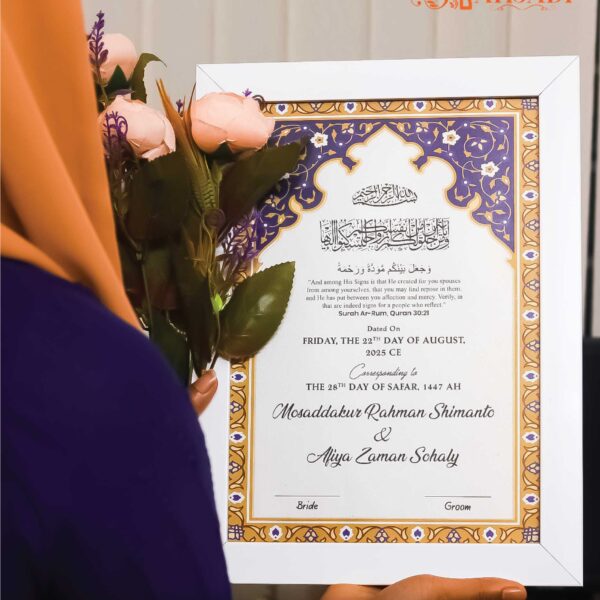 بسم الله الرحمن الرحيم
وَجَعَلَ بَيْنَكُم مَّوَدَّةً وَرَحْمَةً
"And among His Signs is that He created for you spouses
from among yourselves, that you may find repose in them,
and He has put between you affection and mercy. Verily, in
that are indeed signs for a people who reflect."
Surah Ar-Rum, Quran 30:21
Dated On
FRIDAY, THE 22TH DAY OF AUGUST,
2025 CE
Corresponding to
THE 28TH DAY OF SAFAR, 1447 AH
Mosaddakur Rahman Shimanto
&
Afiya Zaman Sohaly
Bride Groom